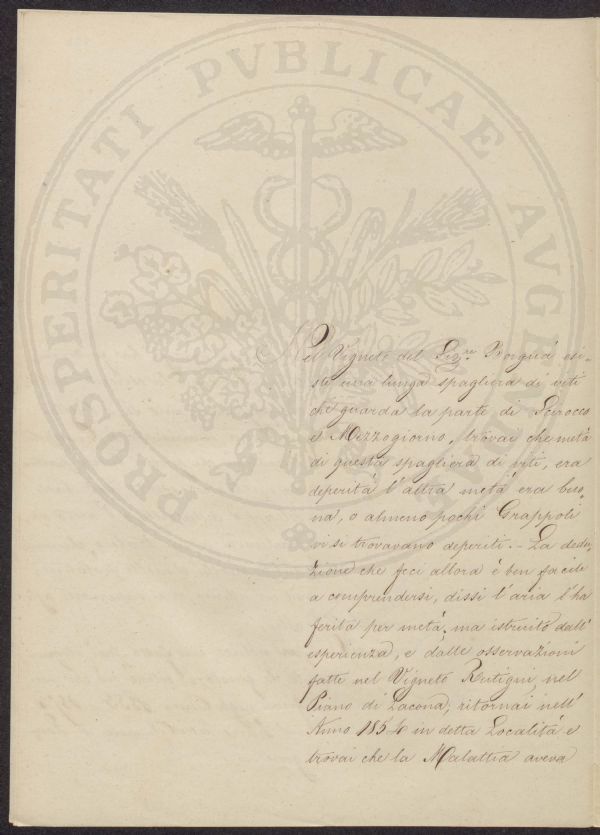 PROSPERITATI PVBLICAE AVGEN
Nel Vigneto del Sig.re Borgna esi-
ste una lunga spagliera di viti
che guarda la parte di Scirocco
e Mezzogiorno, trovai che metà
di questa spagliera di viti, era
deperita l'altra metà era buo-
na, o almeno pochi Grappoli
vi si trovavano deperiti. – La dedu-
zione che feci allora è ben facile
a comprendersi, dissi l'aria l'ha
ferita per metà, ma istruito dall'
esperienza, e dalle osservazioni
fatte nel Vigneto Rutigni, nel
Piano di Lacona, ritornai nell'
Anno 1854 in detta Località e
trovai che la Malattia aveva